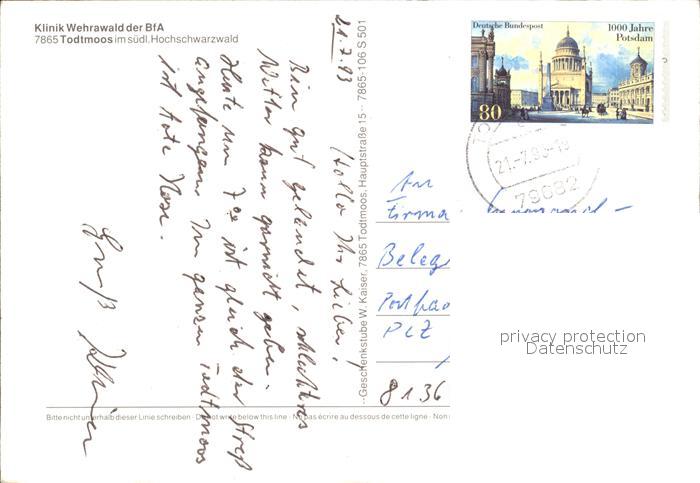 Klinik Wehrawald der BfA
7865 Todtmoos im südl. Hochschwarzwald
Deutsche Bundespost
1000 Jahre
Potsdam
80
21.-7.93-18
79082
21.7.93
Hallo Ihr Lieben!
Bin gut gelandet, schlechtes
Wetter kann garnicht geben.
Heute um 7 ist gleich der Streß
angefangen. Im ganzen Todtmoos
ist tote Hose.
Gruß
Geschenkstube W. Kaiser, 7865 Todtmoos, Hauptstraße 15 -- 7865-106 S 501
An
Firma
Beleg
Postfac
PLZ
8136
privacy protection
Datenschutz
Bitte nicht unterhalb dieser Linie schreiben · Do not write below this line · Ne pas écrire au dessous de cette ligne · Non